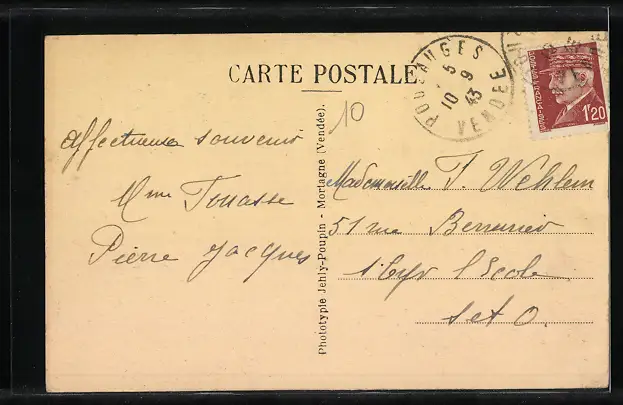 CARTE POSTALE
POUZAUGES
5
10 9
43
VENDEE
POSTES FRANÇAISES
1f20
10
affectueux souvenir
Mme Touasse
Pierre Jacques
Phototypie Jehly-Poupin - Mortagne (Vendée).
Mademoiselle J. Wehlem
51 rue
l'Ecole
S et O.